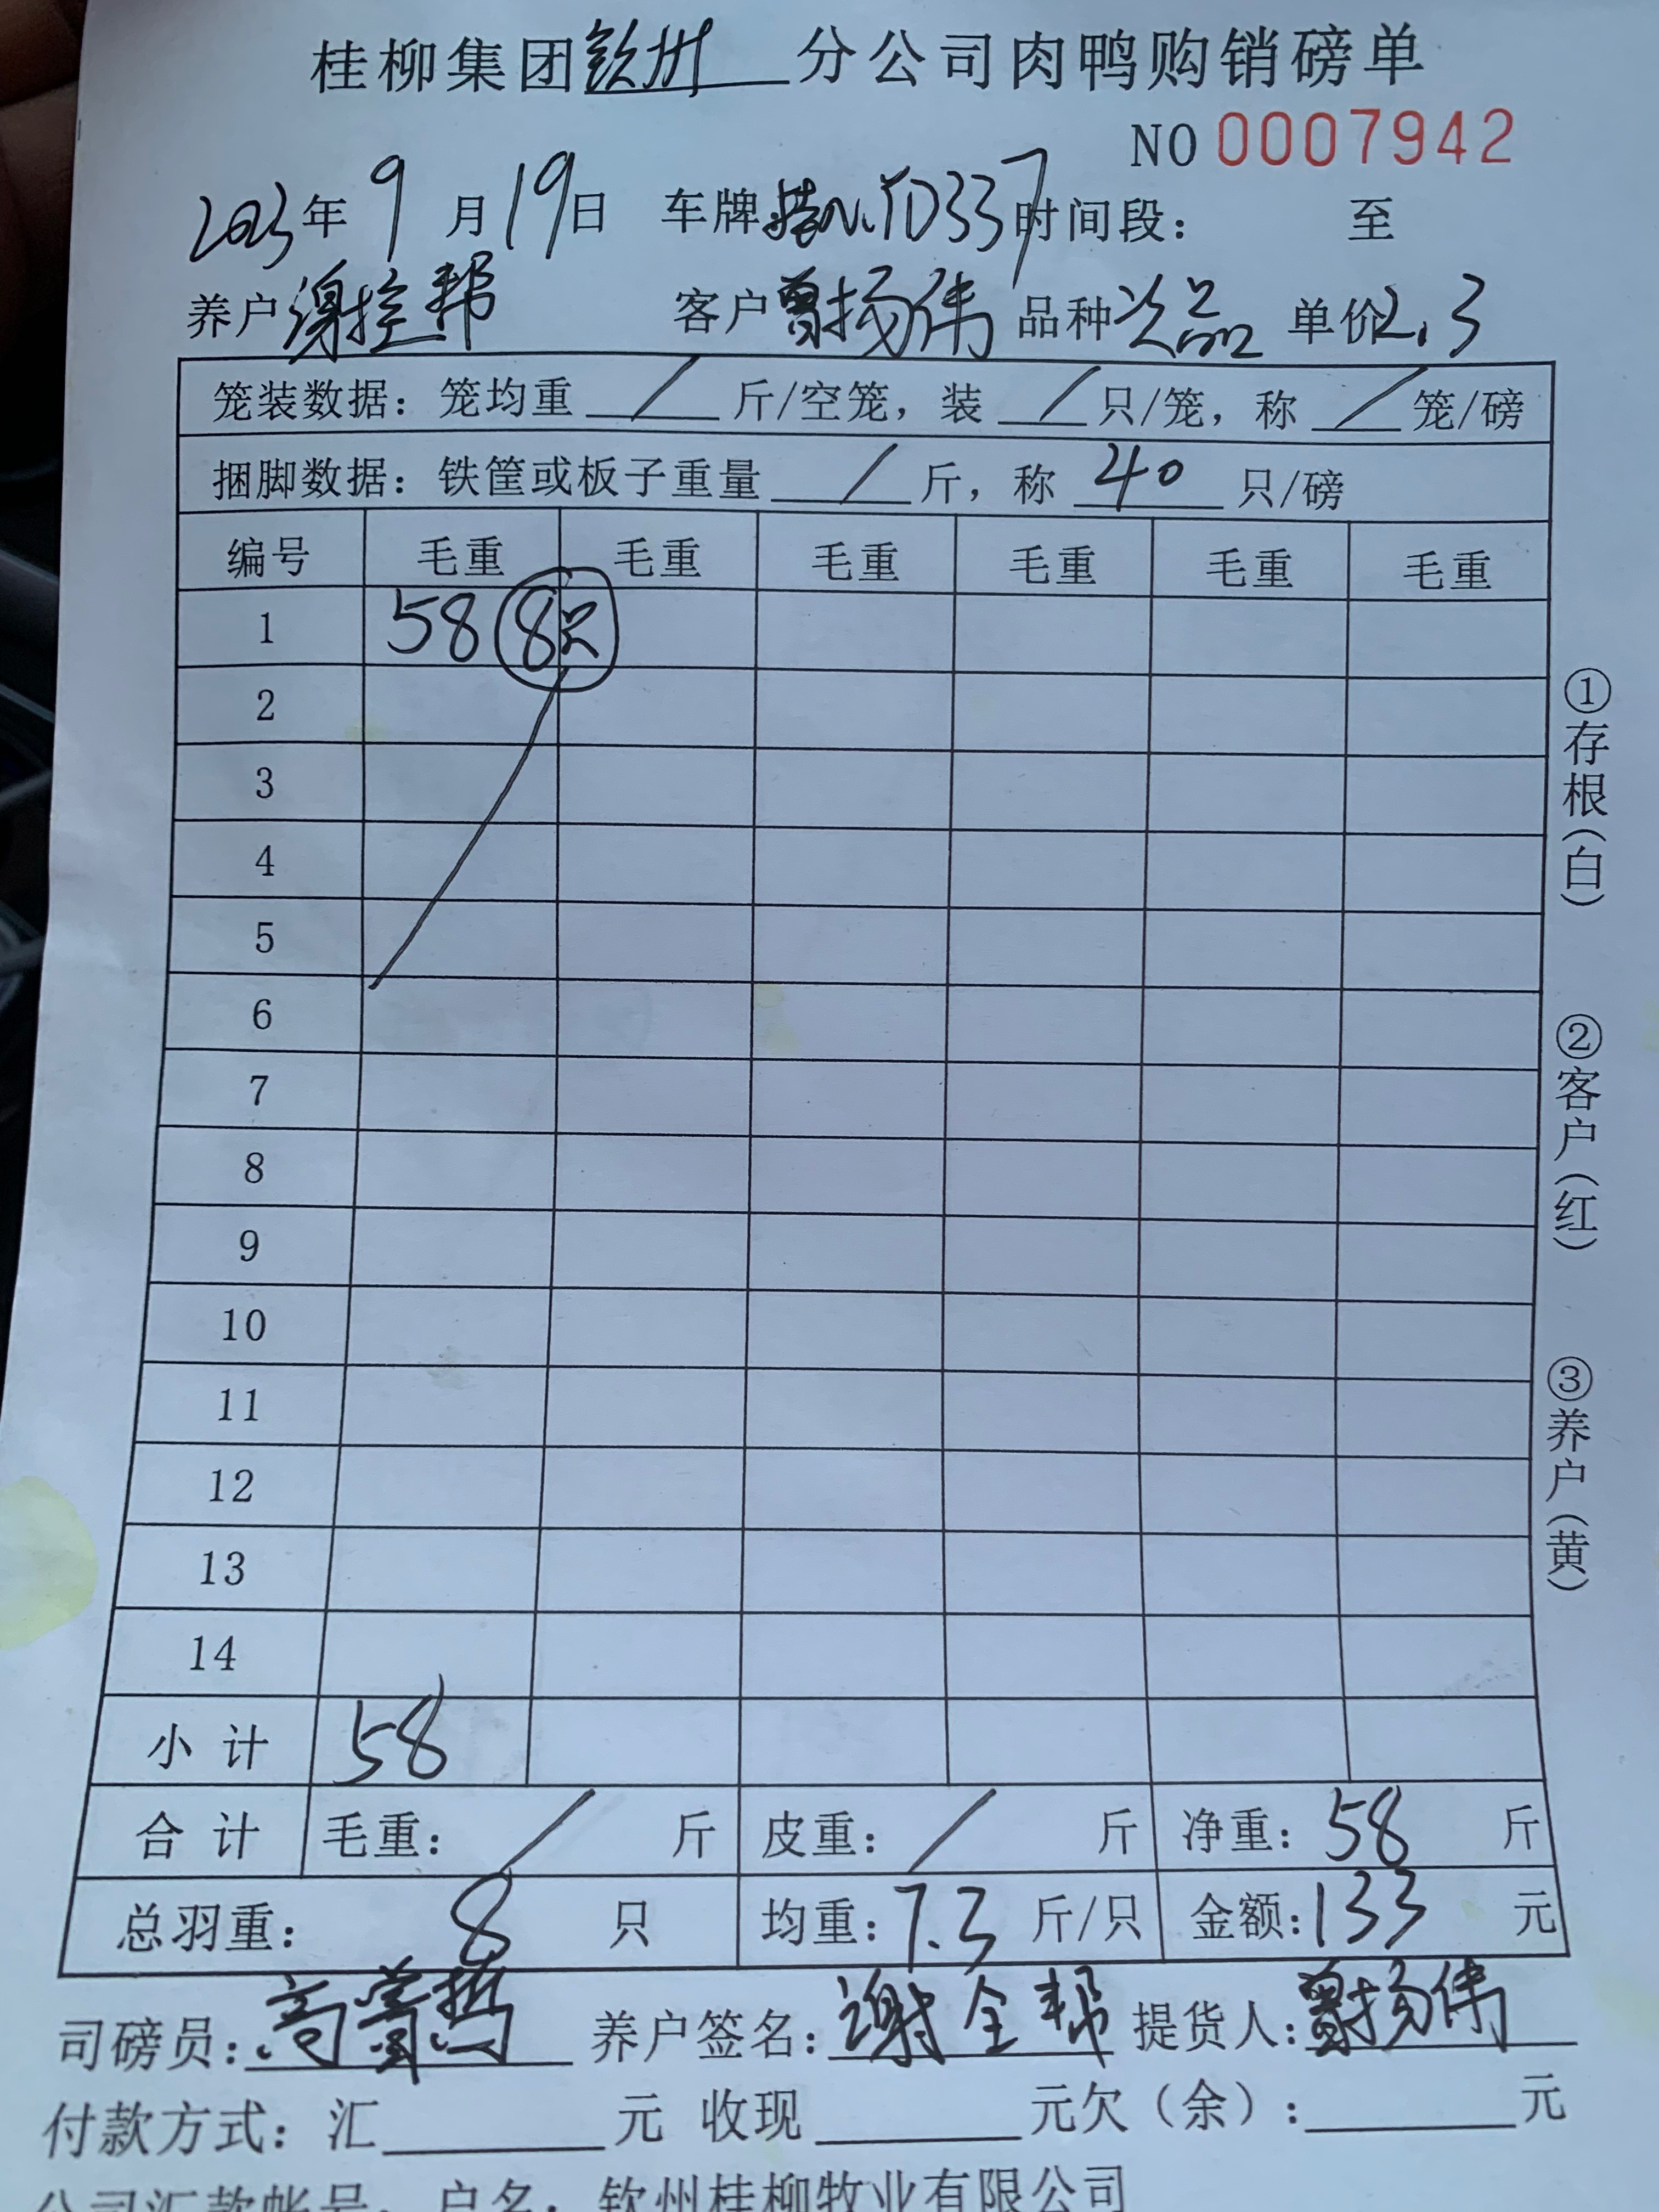 桂柳集团钦州分公司肉鸭购销磅单
NO 0007942
2023年9月19日 车牌 YD337 时间段： 至
养户 谢 帮 客户 曾扬伟 品种 次品 单价 2.3
笼装数据：笼均重 / 斤/空笼，装 / 只/笼，称 / 笼/磅
捆脚数据：铁筐或板子重量 / 斤，称 40 只/磅
编号 毛重 毛重 毛重 毛重 毛重 毛重
1 58 8只
2
3
4
5
6
7
8
9
10
11
12
13
14
小计 58
合计 毛重： / 斤 皮重： / 斤 净重：58 斤
总羽重： 8 只 均重：7.3 斤/只 金额：133 元
司磅员： 养户签名：谢全帮 提货人：曾扬伟
付款方式：汇 元 收现 元欠（余）： 元
公司汇款帐号：户名：钦州桂柳牧业有限公司
①存根（白）
②客户（红）
③养户（黄）